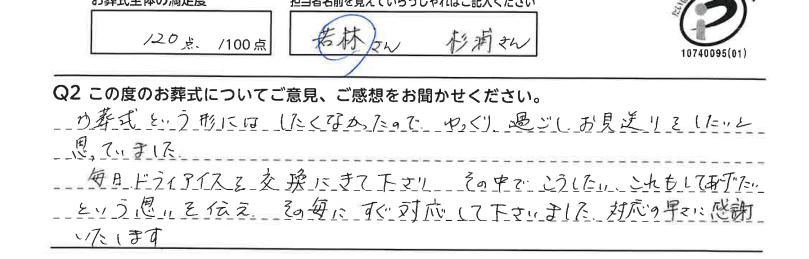 お葬式全体の満足度
担当者名前を覚えていらっしゃればご記入ください
120点 /100点
若林さん 杉浦さん
10740095(01)
Q2 この度のお葬式についてご意見、ご感想をお聞かせください。
お葬式という形にはしたくなかったので ゆっくり過ごしお見送りをしたいと
思っていました
毎日ドライアイスを交換にきて下さり その中でこうしたい、これもしてあげたい
という思いを伝え その毎にすぐ対応して下さいました 対応の早さに感謝
いたします